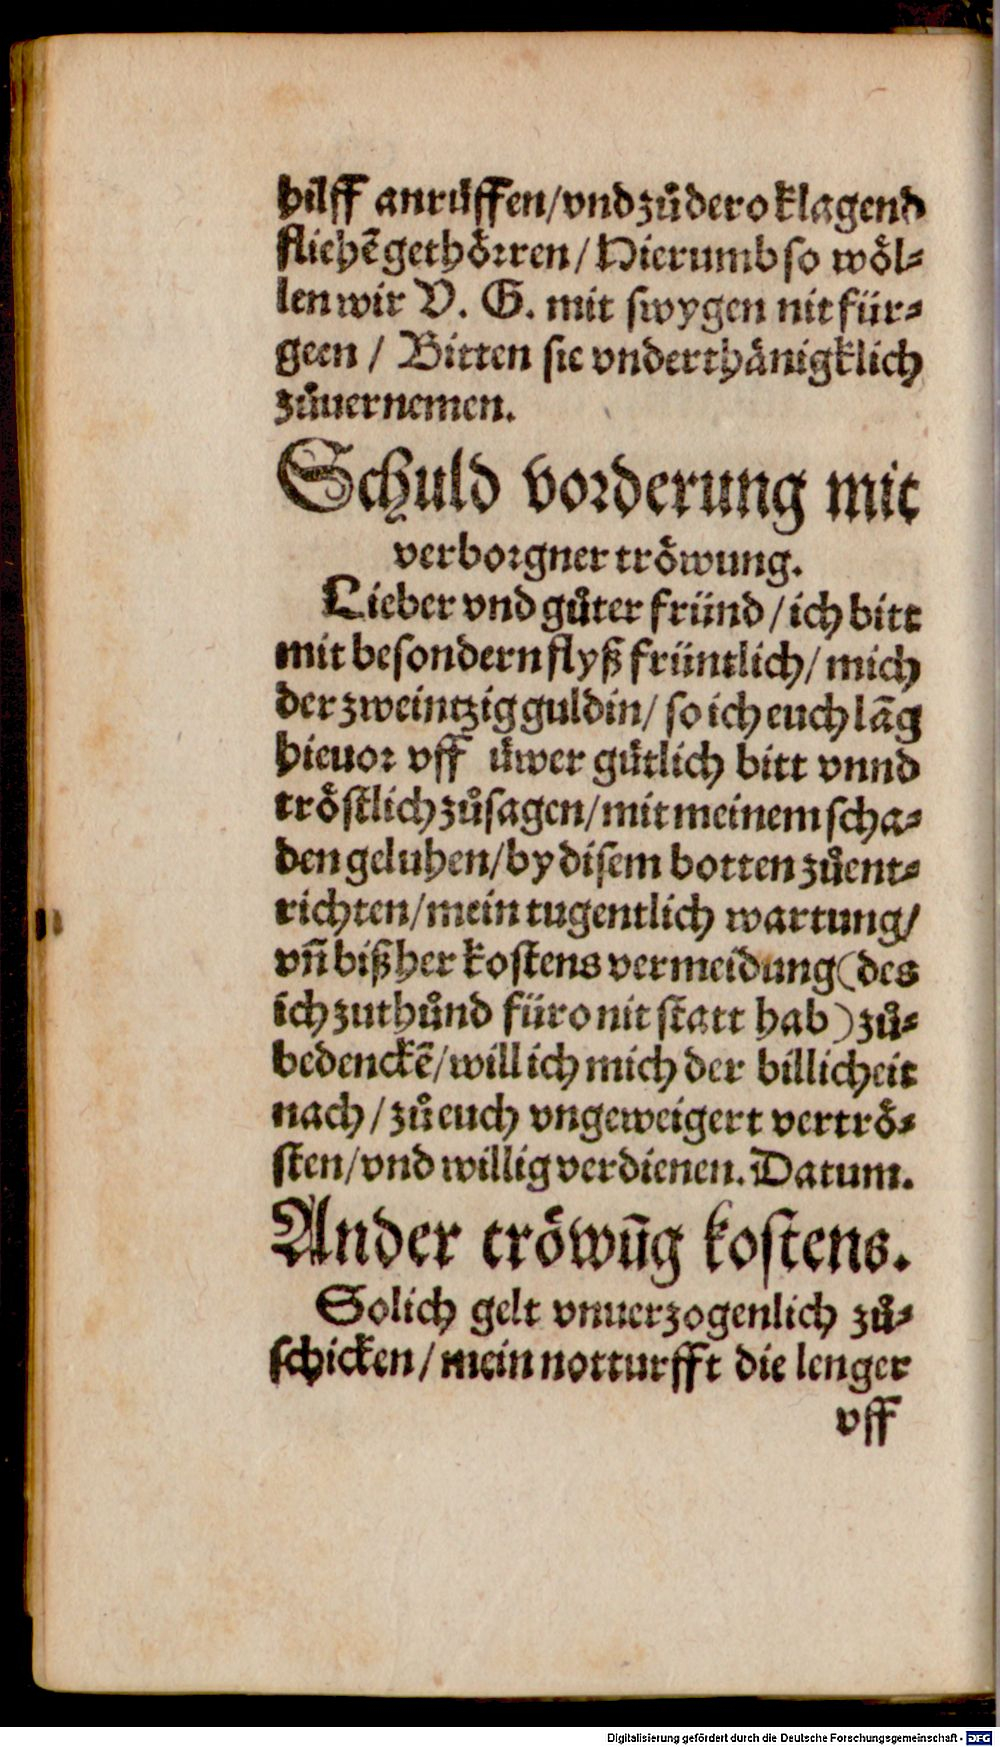 hilff anrüffen/vnd zů dero klagend
fliehē gethörren/Hierumb so wöl⸗
len wir V. G. mit swygen nit für⸗
geen / Bitten sie vnderthänigklich
zůuernemen.
Schuld vorderung mit
verborgner tröwung.
Lieber vnd gůter fründ/ich bitt
mit besondern flyß früntlich/mich
der zweintzig guldin/so ich euch lāg
hieuor vff üwer gütlich bitt vnnd
tröstlich zůsagen/mit meinem scha⸗
den geluhen/by disem botten zůent⸗
richten/mein tugentlich wartung/
vn̄ bißher kostens vermeidung (des
ich zuthůnd füro nit statt hab) zů⸗
bedenckē/will ich mich der billicheit
nach/zů euch vngeweigert vertrö⸗
sten/vnd willig verdienen. Datum.
Ander tröwūg kostens.
Solich gelt vnuerzogenlich zů⸗
schicken/mein notturfft die lenger
vff
Digitalisierung gefördert durch die Deutsche Forschungsgemeinschaft - DFG